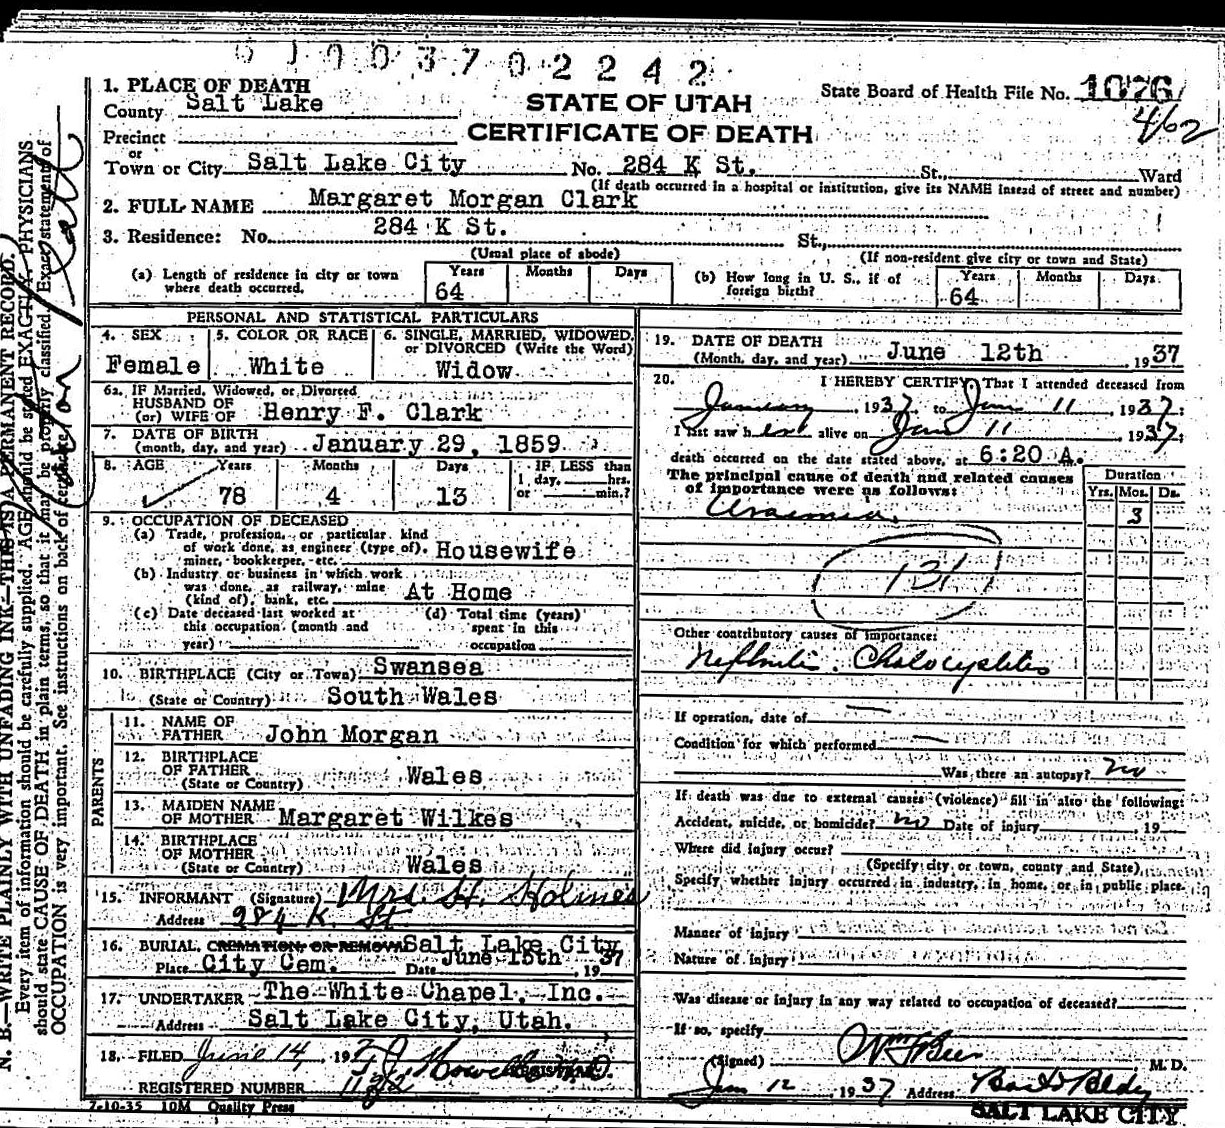 0 1 0 0 3 7 0 2 2 4 2
1. PLACE OF DEATH
County Salt Lake
State Board of Health File No. 1076
462
STATE OF UTAH
CERTIFICATE OF DEATH
Precinct
or
Town or City Salt Lake City No. 284 K St. St., Ward
(If death occurred in a hospital or institution, give its NAME instead of street and number)
2. FULL NAME Margaret Morgan Clark
3. Residence: No. 284 K St. St.,
(Usual place of abode) (If non-resident give city or town and State)
(a) Length of residence in city or town where death occurred. Years 64 Months Days
(b) How long in U. S., if of foreign birth? Years 64 Months Days
PERSONAL AND STATISTICAL PARTICULARS
4. SEX Female
5. COLOR OR RACE White
6. SINGLE, MARRIED, WIDOWED, or DIVORCED (Write the Word) Widow
6a. IF Married, Widowed, or Divorced
HUSBAND OF
(or) WIFE OF Henry F. Clark
7. DATE OF BIRTH
(month, day, and year) January 29, 1859
8. AGE Years 78 Months 4 Days 13 IF LESS than 1 day, hrs. or min.?
9. OCCUPATION OF DECEASED
(a) Trade, profession, or particular kind
of work done, as engineer (type of). Housewife
miner, bookkeeper, etc.
(b) Industry or business in which work
was done, as railway, mine
(kind of), bank, etc. At Home
(c) Date deceased last worked at this occupation (month and year)
(d) Total time (years) spent in this occupation
10. BIRTHPLACE (City or Town) Swansea
(State or Country) South Wales
PARENTS
11. NAME OF
FATHER John Morgan
12. BIRTHPLACE
OF FATHER Wales
(State or Country)
13. MAIDEN NAME
OF MOTHER Margaret Wilkes
14. BIRTHPLACE
OF MOTHER
(State or Country) Wales
15. INFORMANT (Signature) Mrs. H. Holmes
Address 284 K. St
16. BURIAL, CREMATION, OR REMOVAL Salt Lake City
Place City Cem. Date June 15th, 1937
17. UNDERTAKER The White Chapel, Inc.
Address Salt Lake City, Utah.
18. FILED June 14, 193
REGISTERED NUMBER
7-10-35 10M Quality Press
19. DATE OF DEATH
(Month, day, and year) June 12th 1937
20. I HEREBY CERTIFY, That I attended deceased from
January, 1937 to Jun 11, 1937;
I last saw her alive on Jun 11 1937;
death occurred on the date stated above, at 6:20 A.
The principal cause of death and related causes
of importance were as follows:
Duration
Yrs. Mos. Ds.
Uraemia. 3
131
Other contributory causes of importance:
Nephritis. Cholocystitis
If operation, date of
Condition for which performed
Was there an autopsy? no
If death was due to external causes (violence) fill in also the following:
Accident, suicide, or homicide? no Date of injury 19
Where did injury occur?
(Specify city or town, county and State)
Specify whether injury occurred in industry, in home, or in public place.
Manner of injury
Nature of injury
Was disease or injury in any way related to occupation of deceased?
If so, specify
(Signed) M. D.
Jun 12, 1937 Address Bldg
SALT LAKE CITY
N. B.—WRITE PLAINLY WITH UNFADING INK—THIS IS A PERMANENT RECORD.
Every item of information should be carefully supplied. AGE should be stated EXACTLY. PHYSICIANS
should state CAUSE OF DEATH in plain terms, so that it may be properly classified. Exact statement of
OCCUPATION is very important. See instructions on back of certificate.